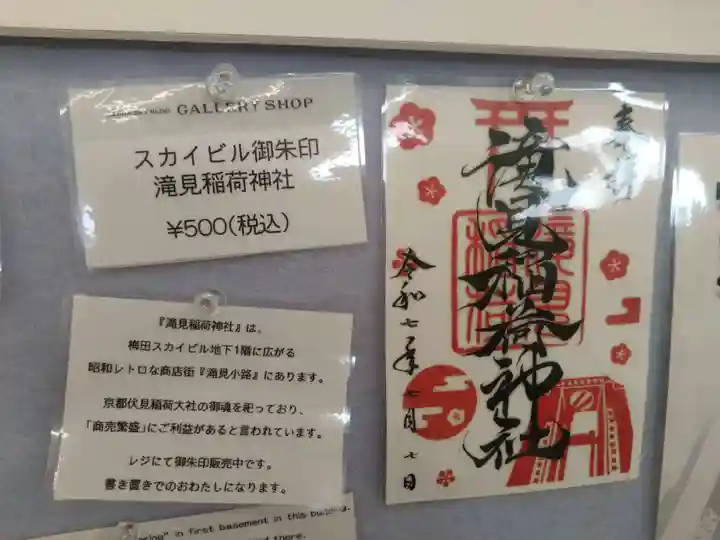 GALLERY SHOP
スカイビル御朱印
滝見稲荷神社
¥500(税込)
『滝見稲荷神社』は、
梅田スカイビル地下1階に広がる
昭和レトロな商店街『滝見小路』にあります。
京都伏見稲荷大社の御魂を祀っており、
「商売繁盛」にご利益があると言われています。
レジにて御朱印販売中です。
書き置きでのおわたしになります。
in first basement in this building.
奉拝
滝見稲荷神社
令和七年七月七日